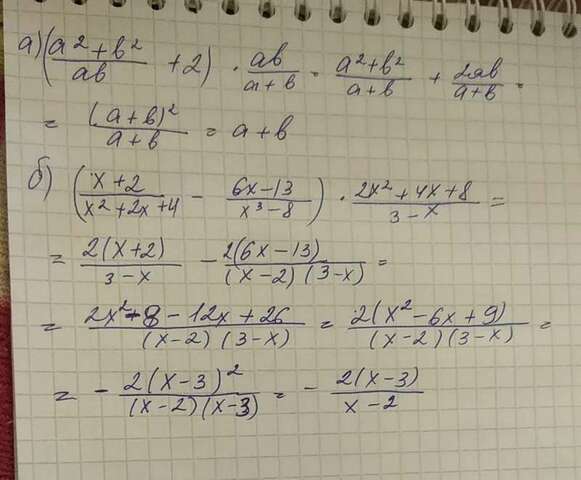 а) ((a² + b²)/(ab) + 2) · (ab)/(a + b) = (a² + b²)/(a + b) + (2ab)/(a + b) =
= (a + b)²/(a + b) = a + b
б) ((x + 2)/(x² + 2x + 4) − (6x − 13)/(x³ − 8)) · (2x² + 4x + 8)/(3 − x) =
= 2(x + 2)/(3 − x) − 2(6x − 13)/((x − 2)(3 − x)) =
= (2x² − 8 − 12x + 26)/((x − 2)(3 − x)) = 2(x² − 6x + 9)/((x − 2)(3 − x)) =
= − 2(x − 3)²/((x − 2)(x − 3)) = − 2(x − 3)/(x − 2)